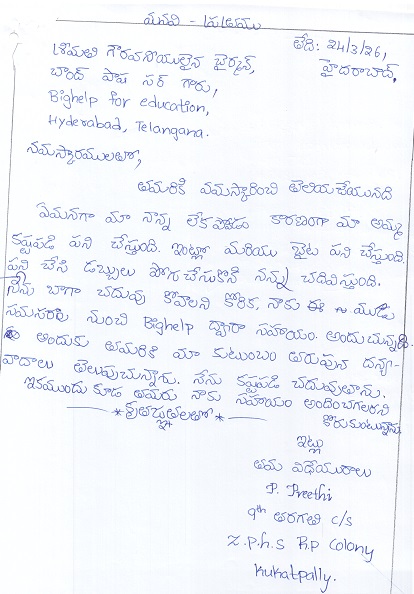 మనవి -
తేది: 24/3/26,
హైదరాబాద్,
శ్రీమతి గౌరవనీయులైన చైర్మన్,
చాంద్ పాష సర్ గారు,
Bighelp for education,
Hyderabad, Telangana.
నమస్కారములతో,
తమరికి నమస్కారించి తెలియచేయునది
ఏమనగా మా నాన్న లేకపోవడం కారణంగా మా అమ్మ
కష్టపడి పని చేస్తుంది. ఇంట్లో మరియు బైట పని చేస్తుంది.
పని చేసి డబ్బులు పోగుచేసుకొని నన్ను చదివిస్తుంది.
నేను బాగా చదువు కోవాలని కోరిక, నాకు ఈ మూడు
నుంచి Bighelp ద్వారా సహాయం. అందుచున్నది
అందుకు తమరికి మా కుటుంబం తరుపున దన్య-
వాదాలు తెలుపుచున్నాను. నేను కష్టపడి చదువుతాను.
ఇకముందు కూడ తమరు నాకు సహాయం అందించగలరని
కోరుకుంటున్నాను
* కృతజ్ఞతలతో *
ఇట్లు
తమ విధేయురాలు
P. Preethi
9th తరగతి c/s
Z.p.h.s R.P Colony
Kukatpally.